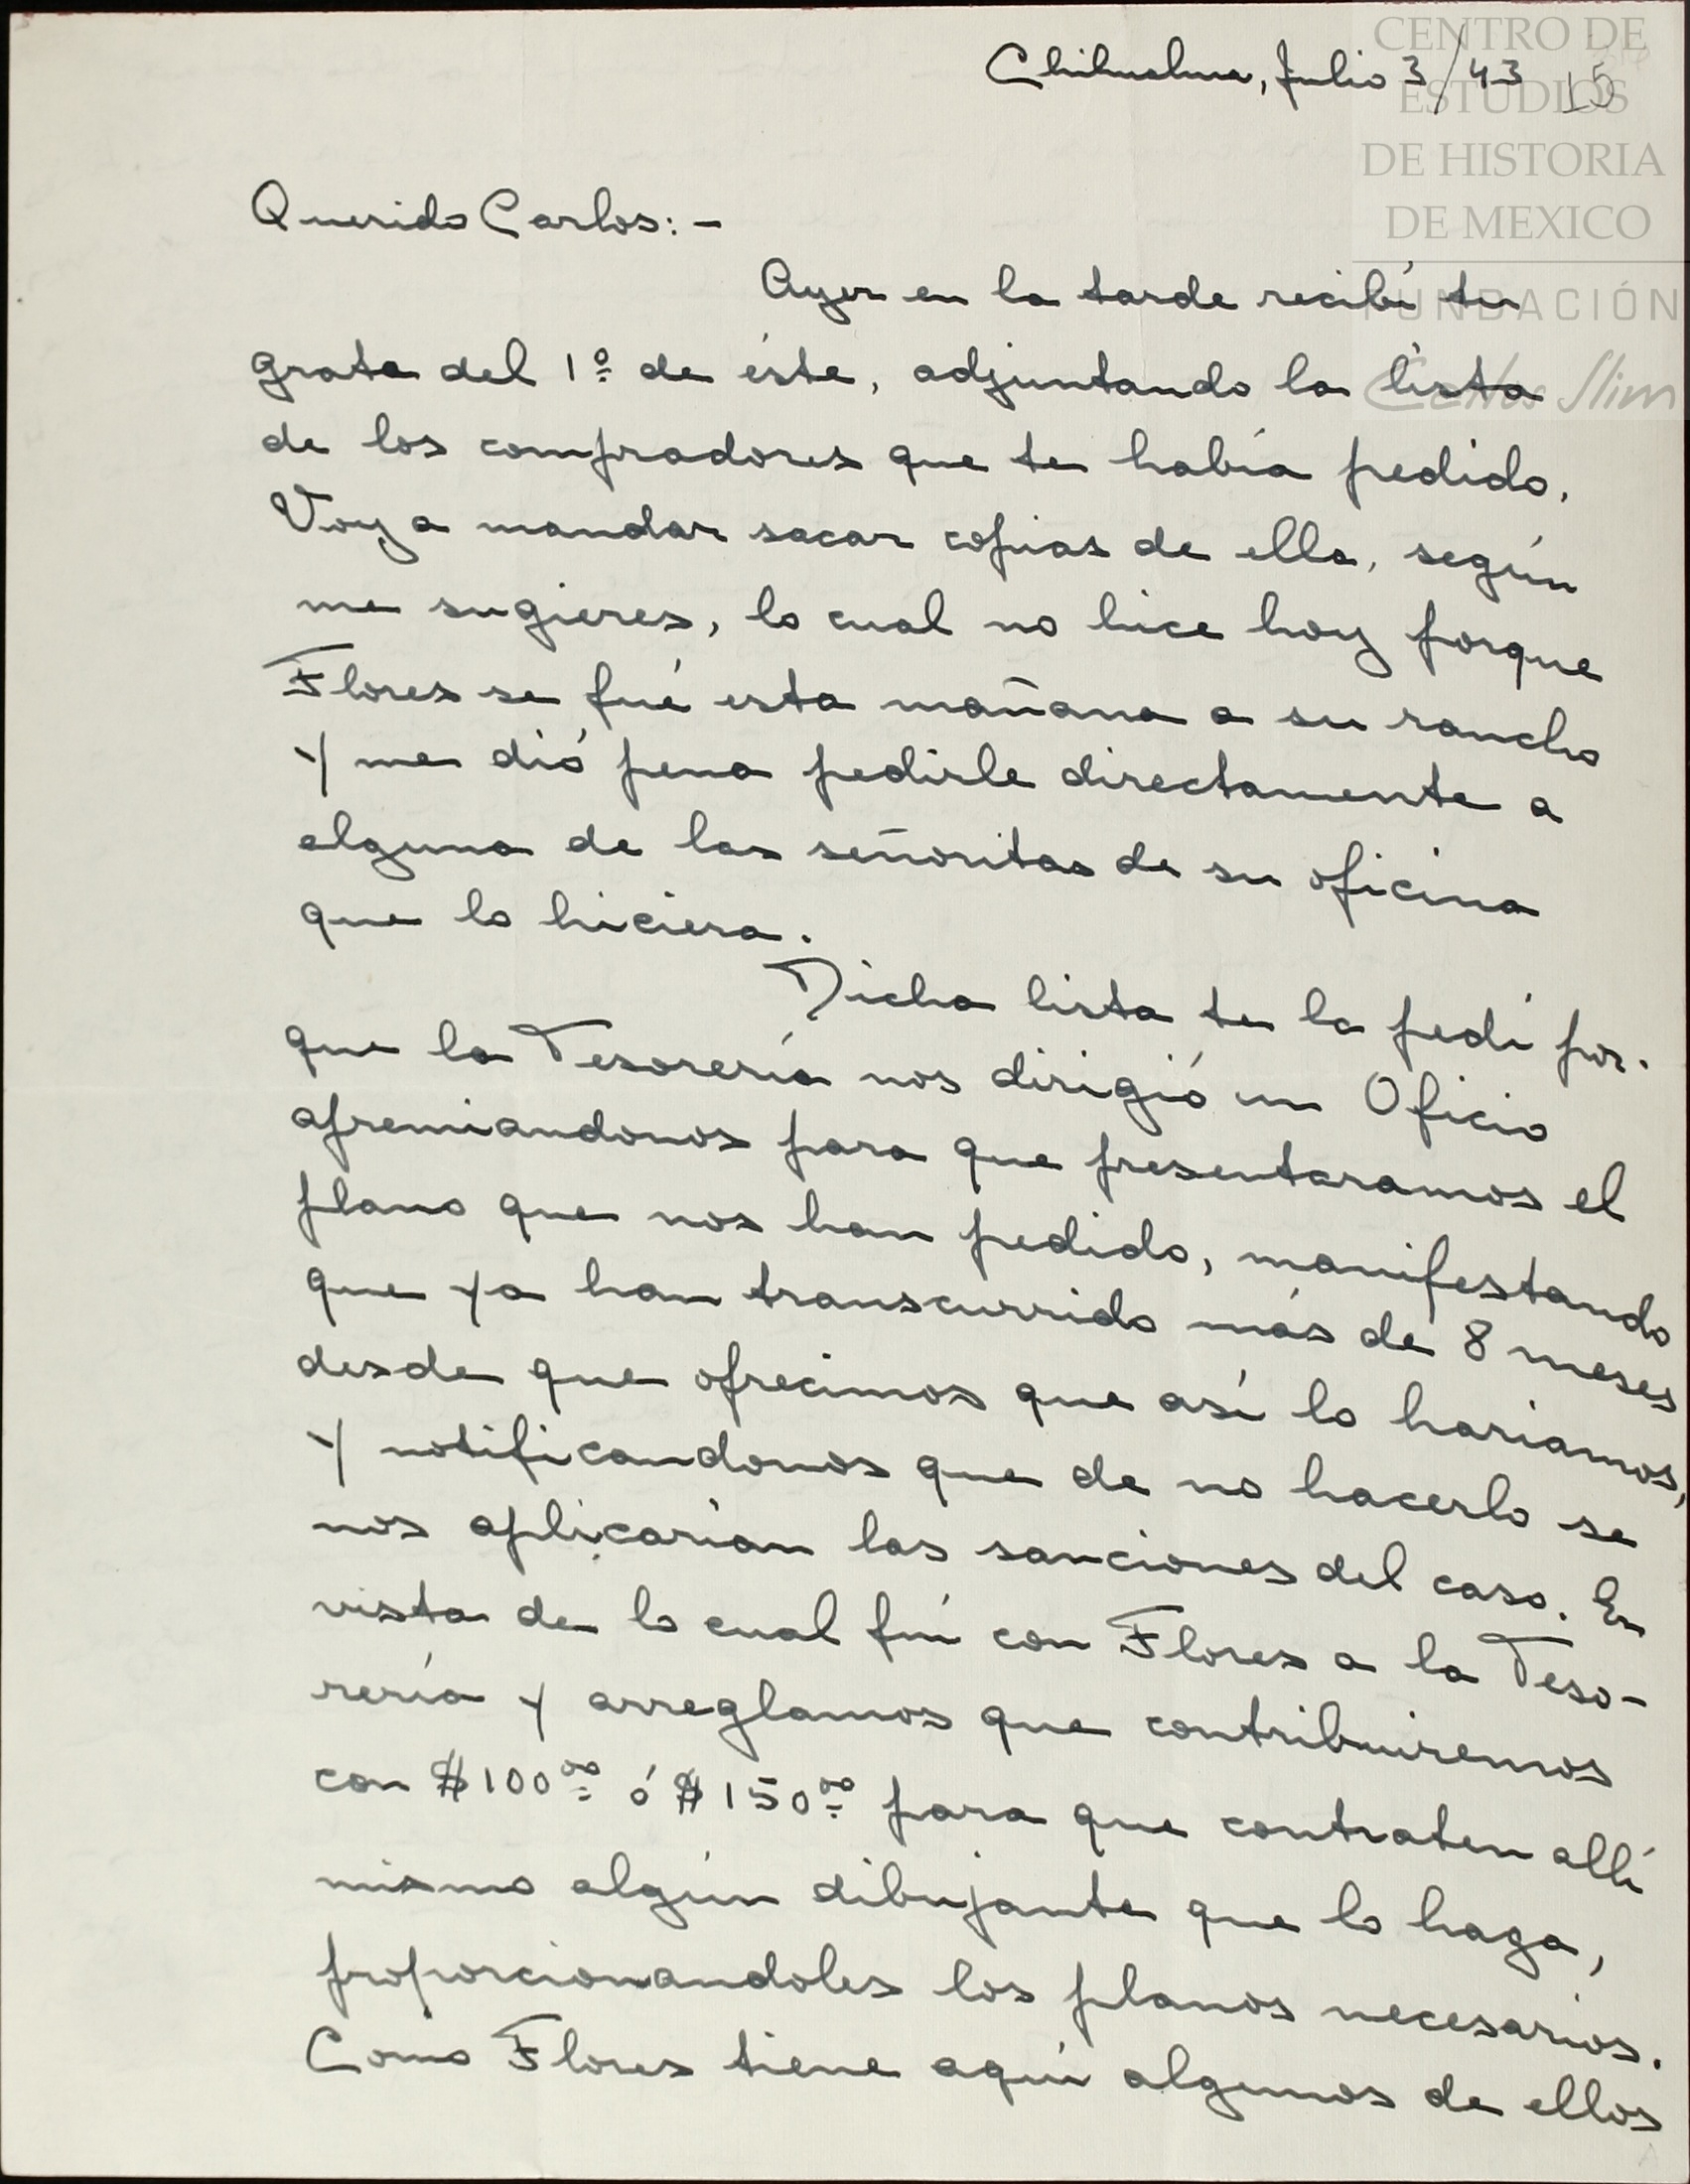 Chihuahua, Julio 3/43 15
CENTRO DE
ESTUDIOS
DE HISTORIA
DE MEXICO
FUNDACIÓN
Carlos Slim
Querido Carlos:-
Ayer en la tarde recibí tu
grata del 1º de éste, adjuntando la lista
de los compradores que te había pedido.
Voy a mandar sacar copias de ella, según
me sugieres, lo cual no hice hoy porque
Flores se fué esta mañana a su rancho
y me dió pena pedirle directamente a
alguna de las señoritas de su oficina
que lo hiciera.
Dicha lista te la pedí por-
que la Tesorería nos dirigió un Oficio
apremiandonos para que presentaramos el
plano que nos han pedido, manifestando
que ya han transcurrido más de 8 meses
desde que ofrecimos que así lo hariamos,
y notificandonos que de no hacerlo se
nos aplicarían las sanciones del caso. En
vista de lo cual fuí con Flores a la Teso-
rería y arreglamos que contribuiremos
con $100.00 ó $150.00 para que contraten allí
mismo algún dibujante que lo haga,
proporcionandoles los planos necesarios.
Como Flores tiene aquí algunos de ellos